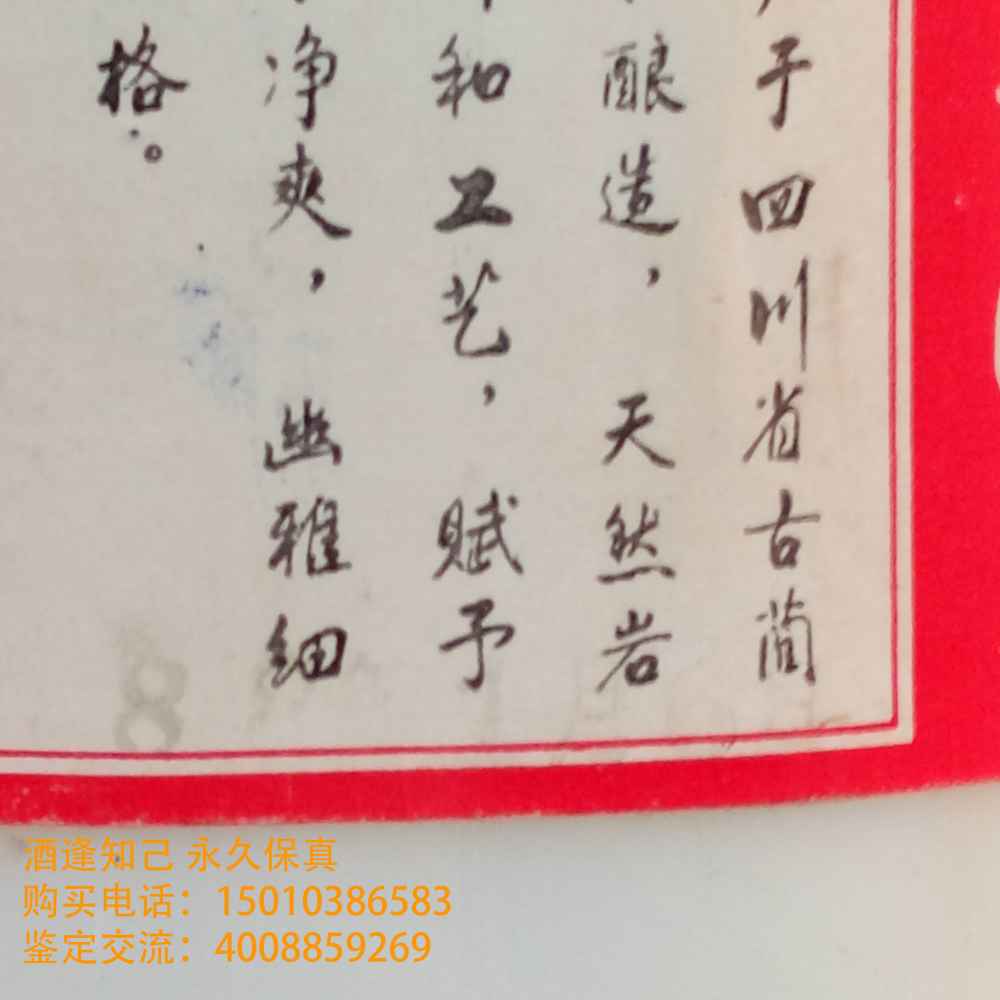 于四川省古蔺
酿造，天然岩
和工艺，赋予
净爽，幽雅细
格。
酒逢知己 永久保真
购买电话：15010386583
鉴定交流：4008859269